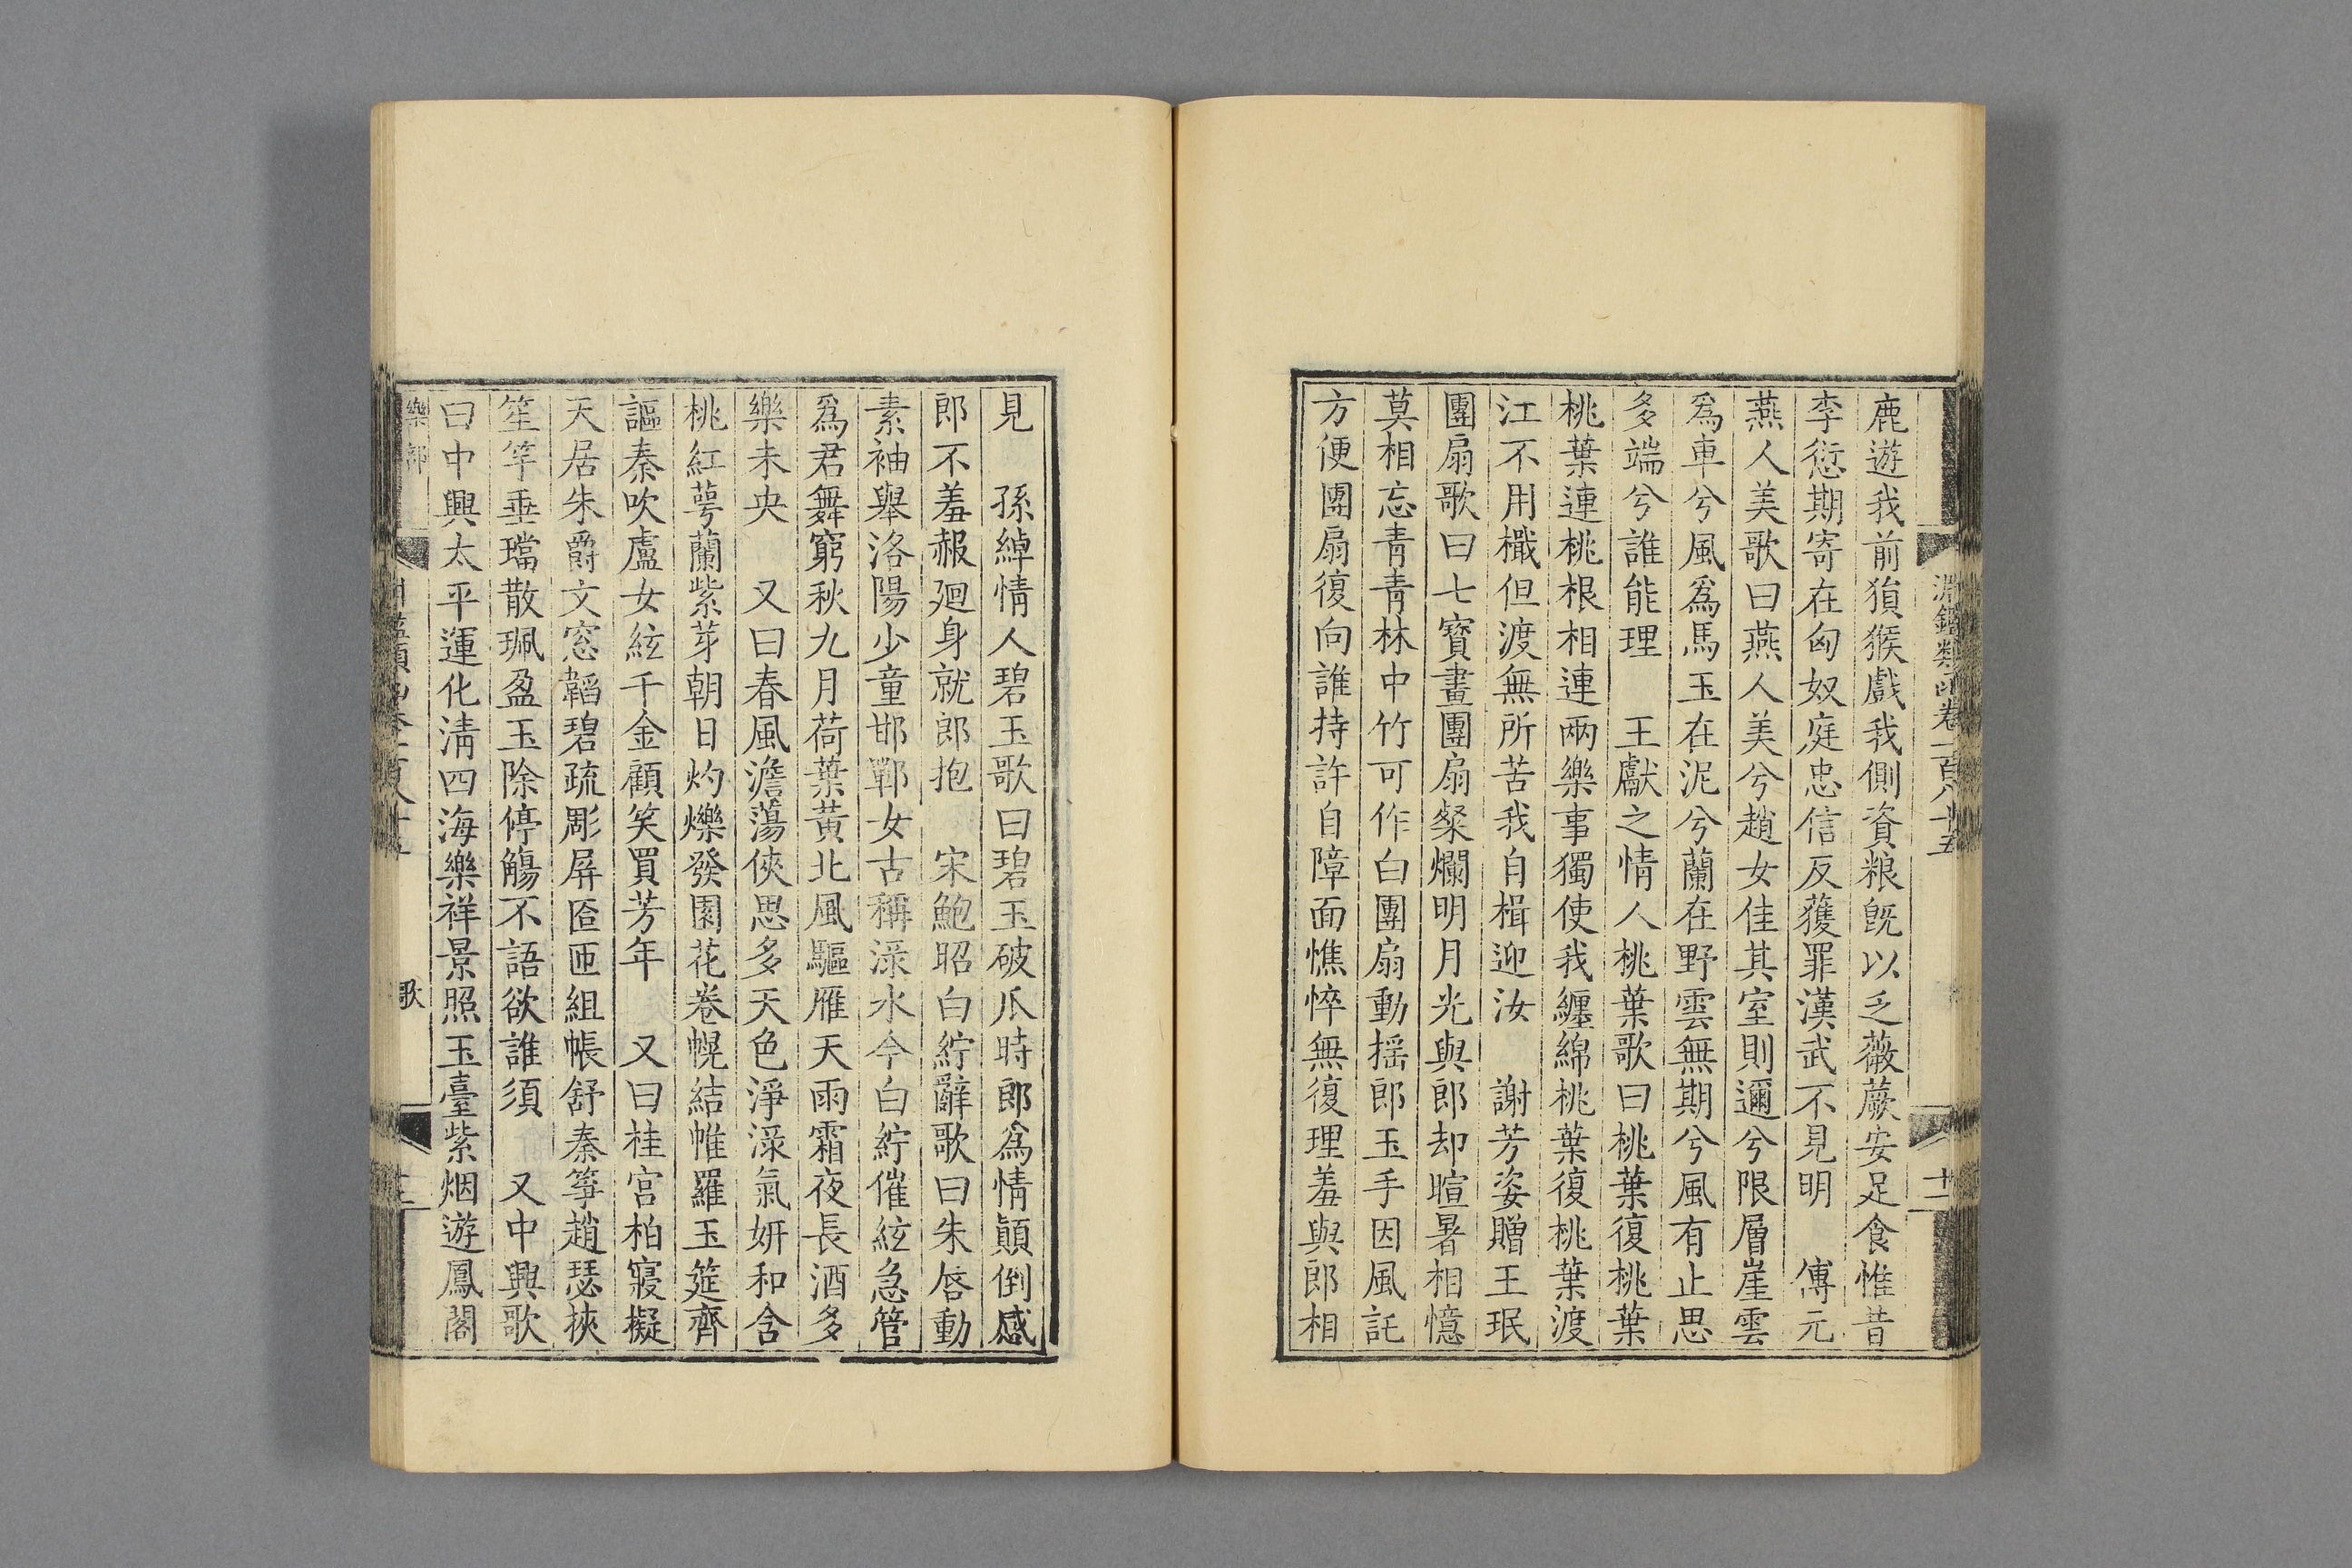 淵鑑類函卷一百八十五
十二
鹿遊我前猿猴戲我側資粮旣以乏薇蕨安足食惟昔
李愆期寄在匈奴庭忠信反獲罪漢武不見明　傅元
燕人美歌曰燕人美兮趙女佳其室則邇兮限層崖雲
爲車兮風爲馬玉在泥兮蘭在野雲無期兮風有止思
多端兮誰能理　王獻之情人桃葉歌曰桃葉復桃葉
桃葉連桃根相連兩樂事獨使我纏綿桃葉復桃葉渡
江不用檝但渡無所苦我自楫迎汝　謝芳姿贈王珉
團扇歌曰七寶畫團扇粲爛明月光與郎却暄暑相憶
莫相忘青青林中竹可作白團扇動揺郎玉手因風託
方便團扇復向誰持許自障面憔悴無復理羞與郎相
見　孫綽情人碧玉歌曰碧玉破瓜時郎爲情顚倒感
郎不羞赧廻身就郎抱　宋鮑昭白紵辭歌曰朱唇動
素袖舉洛陽少童邯鄲女古稱淥水今白紵催絃急管
爲君舞窮秋九月荷葉黃北風驅雁天雨霜夜長酒多
樂未央　又曰春風澹蕩俠思多天色淨淥氣妍和含
桃紅萼蘭紫芽朝日灼爍發園花卷幌結帷羅玉筵齊
謳秦吹盧女絃千金顧笑買芳年　又曰桂宮柏寢擬
天居朱爵文窓韜碧疏彫屏匼匝組帳舒秦箏趙瑟挾
笙竽垂璫散珮盈玉除停觴不語欲誰須　又中興歌
曰中興太平運化淸四海樂祥景照玉臺紫烟遊鳳閣
樂部
歌